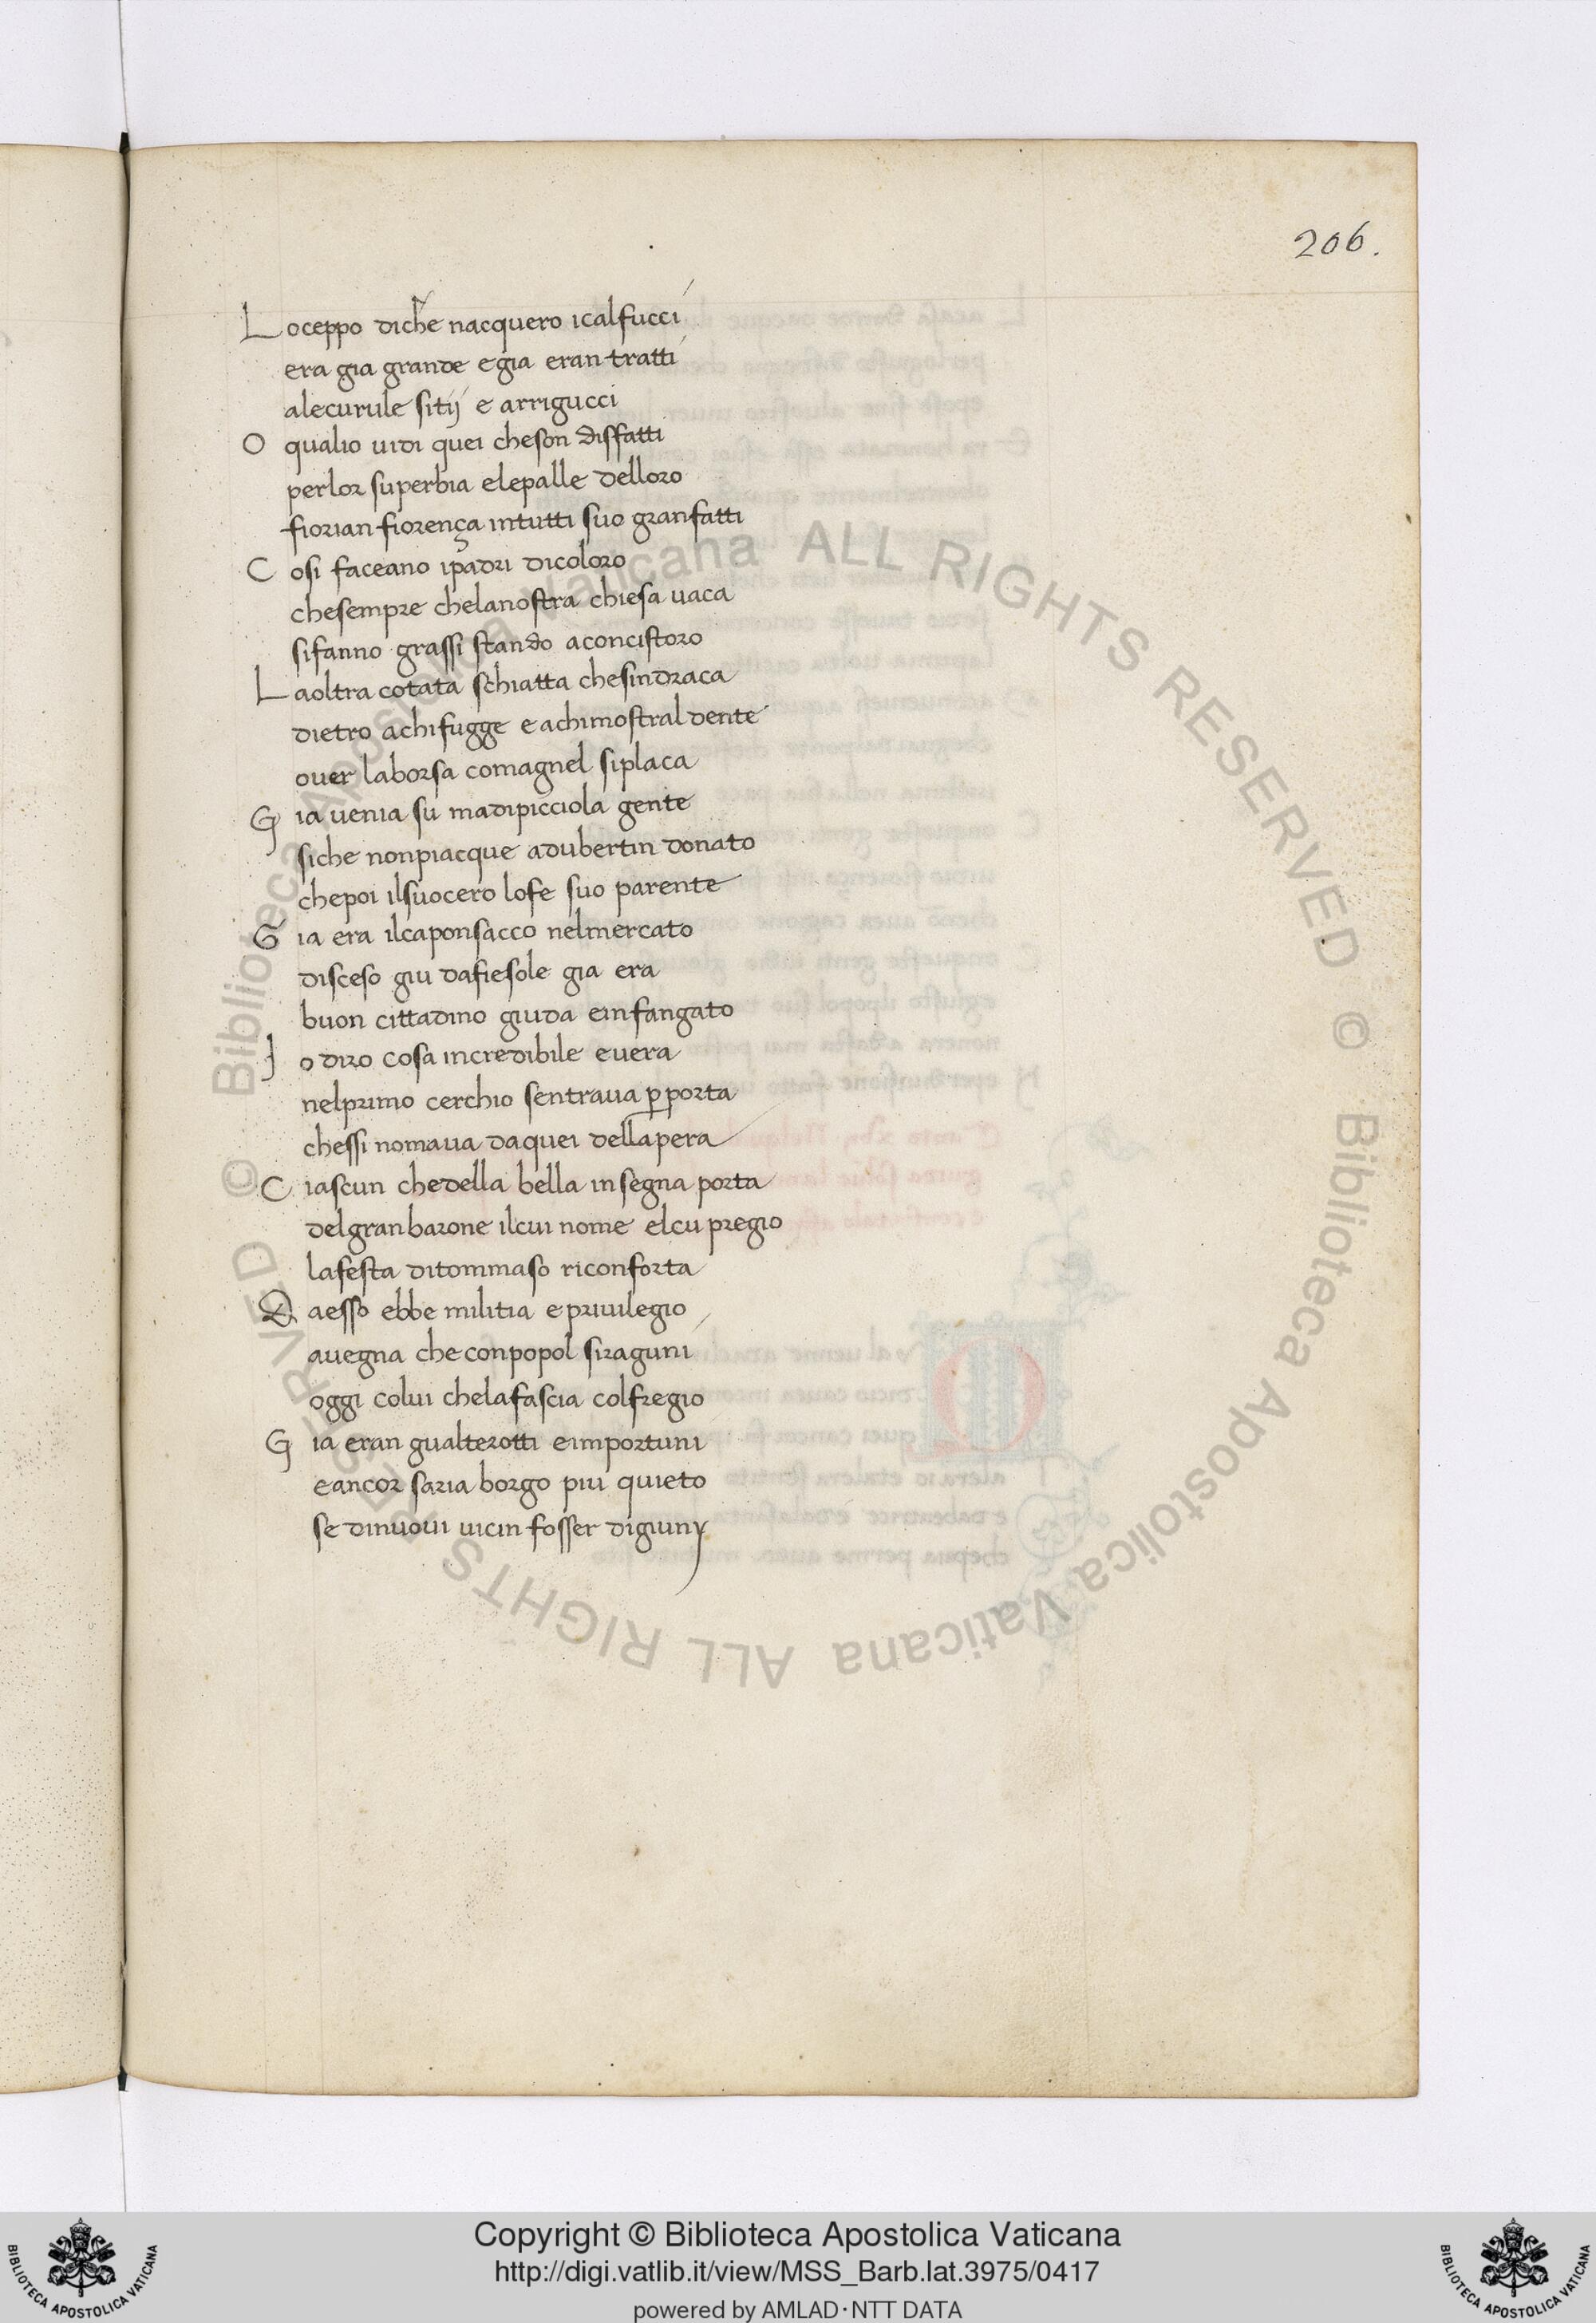 206.
Loceppo diche nacquero icalfucci
era gia grande egia eran tratti
alecurule sitij e arrigucci
O qualio uidi quei cheson disfatti
perlor superbia elepalle delloro
fiorian fiorença intutti suo granfatti
Cosi faceano ipadri dicoloro
chesempre chelanostra chiesa uaca
sifanno grassi stando aconcistoro
Laoltra cotata schiatta chesindraca
dietro achifugge e achimostral dente
ouer laborsa comagnel siplaca
Gia uenia su madipicciola gente
siche nonpiacque adubertin donato
chepoi ilsuocero lofe suo parente
Gia era ilcaponsacco nelmercato
disceso giu dafiesole gia era
buon cittadino giuda einfangato
Io diro cosa incredibile euera
nelprimo cerchio sentraua ꝑ porta
chessi nomaua daquei dellapera
Ciascun chedella bella insegna porta
delgranbarone ilcui nome elcu pregio
lafesta ditommaso riconforta
Daesso ebbe militia epriuilegio
auegna checonpopol siraguni
oggi colui chelafascia colfregio
Gia eran gualterotti eimportuni
eancor saria borgo piu quieto
se dinuoui uicin fosser digiuny
Copyright © Biblioteca Apostolica Vaticana
http://digi.vatlib.it/view/MSS_Barb.lat.3975/0417
powered by AMLAD·NTT DATA
BIBLIOTECA APOSTOLICA VATICANA
BIBLIOTECA APOSTOLICA VATICANA
© Biblioteca Apostolica Vaticana ALL RIGHTS RESERVED © Biblioteca Apostolica Vaticana ALL RIGHTS RESERVED